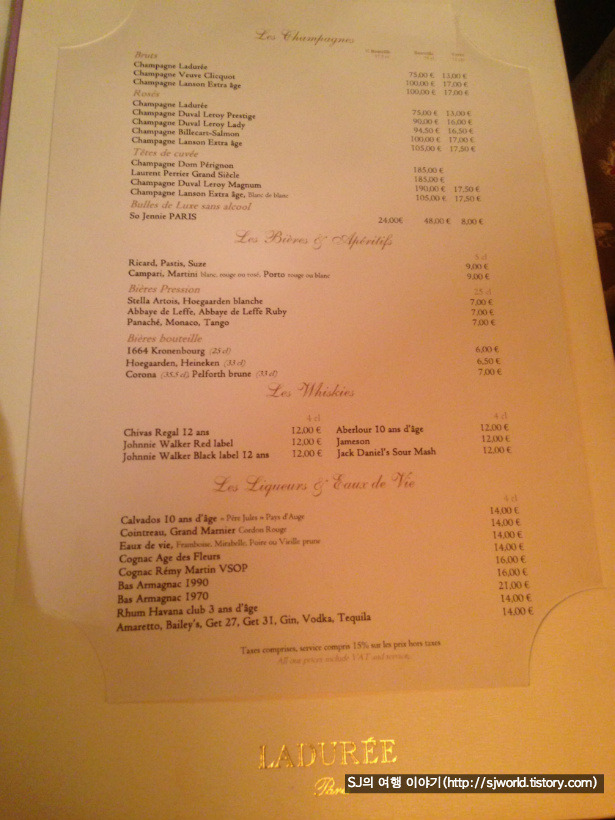 Les Champagnes
½ Bouteille Bouteille Coupe
Bruts
Champagne Ladurée 75,00 € 13,00 €
Champagne Veuve Clicquot 100,00 € 17,00 €
Champagne Lanson Extra âge 100,00 € 17,00 €
Rosés
Champagne Ladurée 75,00 € 13,00 €
Champagne Duval Leroy Prestige 90,00 € 16,00 €
Champagne Duval Leroy Lady 94,50 € 16,50 €
Champagne Billecart-Salmon 100,00 € 17,00 €
Champagne Lanson Extra âge 105,00 € 17,50 €
Têtes de cuvée
Champagne Dom Pérignon 185,00 €
Laurent Perrier Grand Siècle 185,00 €
Champagne Duval Leroy Magnum 190,00 € 17,50 €
Champagne Lanson Extra âge, Blanc de blanc 105,00 € 17,50 €
Bulles de Luxe sans alcool
So Jennie PARIS 24,00€ 48,00 € 8,00 €
Les Bières & Apéritifs
Ricard, Pastis, Suze 9,00 €
Campari, Martini blanc, rouge ou rosé, Porto rouge ou blanc 9,00 €
Bières Pression 25 cl
Stella Artois, Hoegaarden blanche 7,00 €
Abbaye de Leffe, Abbaye de Leffe Ruby 7,00 €
Panaché, Monaco, Tango 7,00 €
Bières bouteille
1664 Kronenbourg (25 cl) 6,00 €
Hoegaarden, Heineken (33 cl) 6,50 €
Corona (35.5 cl), Pelforth brune (33 cl) 7,00 €
Les Whiskies
4 cl 4 cl
Chivas Regal 12 ans 12,00 € Aberlour 10 ans d'âge 12,00 €
Johnnie Walker Red label 12,00 € Jameson 12,00 €
Johnnie Walker Black label 12 ans 12,00 € Jack Daniel's Sour Mash 12,00 €
Les Liqueurs & Eaux de Vie
4 cl
Calvados 10 ans d'âge « Père Jules » Pays d'Auge 14,00 €
Cointreau, Grand Marnier Cordon Rouge 14,00 €
Eaux de vie, Framboise, Mirabelle, Poire ou Vieille prune 14,00 €
Cognac Age des Fleurs 14,00 €
Cognac Rémy Martin VSOP 16,00 €
Bas Armagnac 1990 16,00 €
Bas Armagnac 1970 21,00 €
Rhum Havana club 3 ans d'âge 14,00 €
Amaretto, Bailey's, Get 27, Get 31, Gin, Vodka, Tequila 14,00 €
Taxes comprises, service compris 15% sur les prix hors taxes
All our prices include VAT and service.
LADURÉE
SJ의 여행 이야기(http://sjworld.tistory.com)